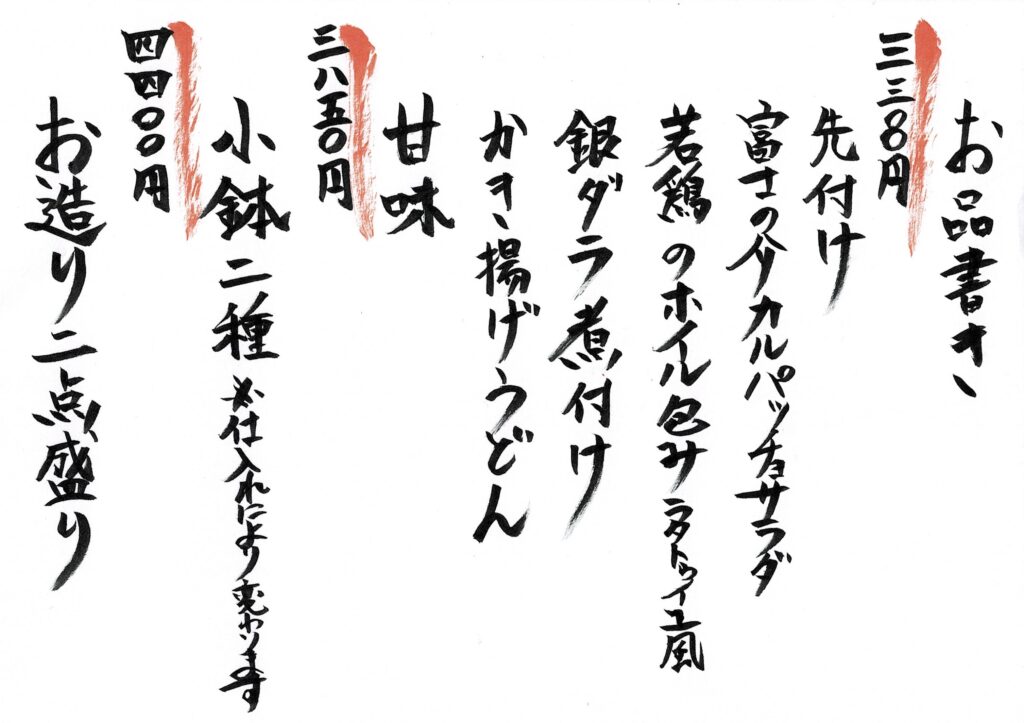 お品書き
三三〇〇円
先付け
富士の介カルパッチョサラダ
若鶏のホイル包みラタトゥイユ風
銀ダラ煮付け
かき揚げうどん
甘味
三八五〇円
小鉢二種 ※仕入れにより変わります
四四〇〇円
お造り二点盛り